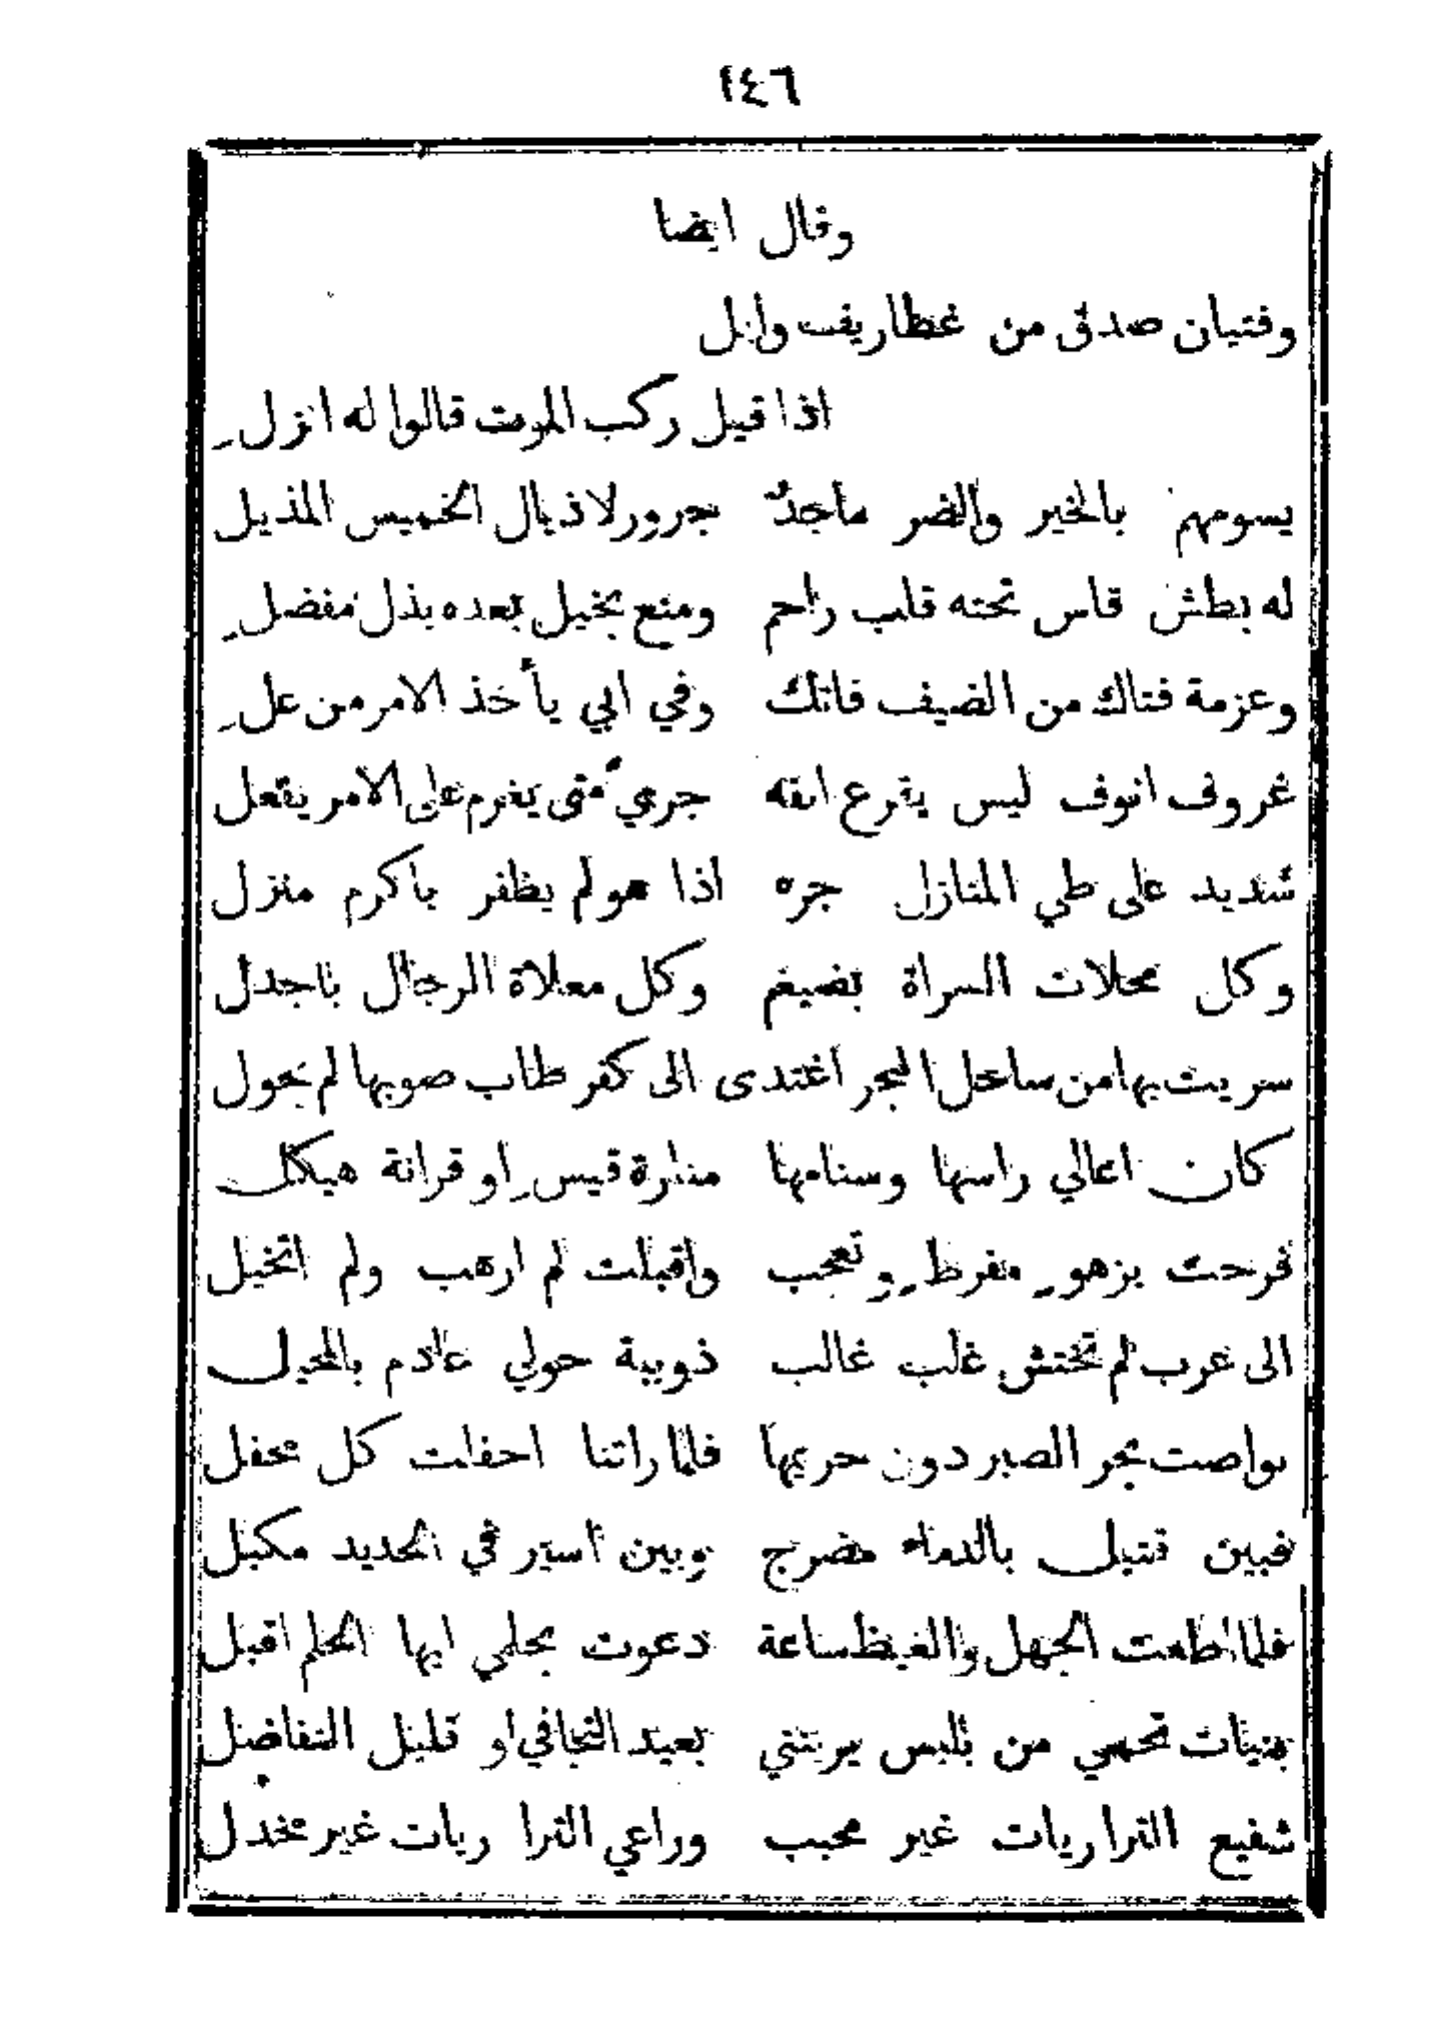 ١٤٦
وقال ايضا
وفتيان صدق من غطاريف وائل
اذا قيل ركب الموت قالوا له انزل
يسومهم بالخير والضر ماجدٌ جرور لاذيال الخميس المذيل
له بطش قاس تحته قلب راحم ومنع بخيل بعده بذل مفضل
وعزمة فتاك من الضيف فاتك وفي ابي يأخذ الامر من عل
عروف انوف ليس يقرع انفه جري متى يغرم على الامر يفعل
شديد على طي المنازل جره اذا هو لم يظفر باكرم منزل
وكل محلات السراة بضيغم وكل معلاة الرجال باجدل
سريت بها من ساحل البحر اغتدى الى كفر طاب صوبها لم يحول
كان اعالي راسها وسنامها منارة قيس او قرانة هيكل
فرحت بزهو مفرط وتعجب واقبلت لم ارهب ولم اتخيل
الى عرب لم تختش غلب غالب ذويبة حولي عادم
تواصت بحر الصبر دون حريمها فلما راتنا احفلت كل محفل
فبين قتيل بالدماء مضرج وبين اسير في الحديد مكبل
فلما اطعت الجهل والغيظ ساعة دعوت بحلمي ايها الحلم اقبل
بنيات تحمي من يلبس بعيد التجافي او قليل التفاضل
شفيع الترا ريات غير محبب وراعي الترا ريات غير مخذل